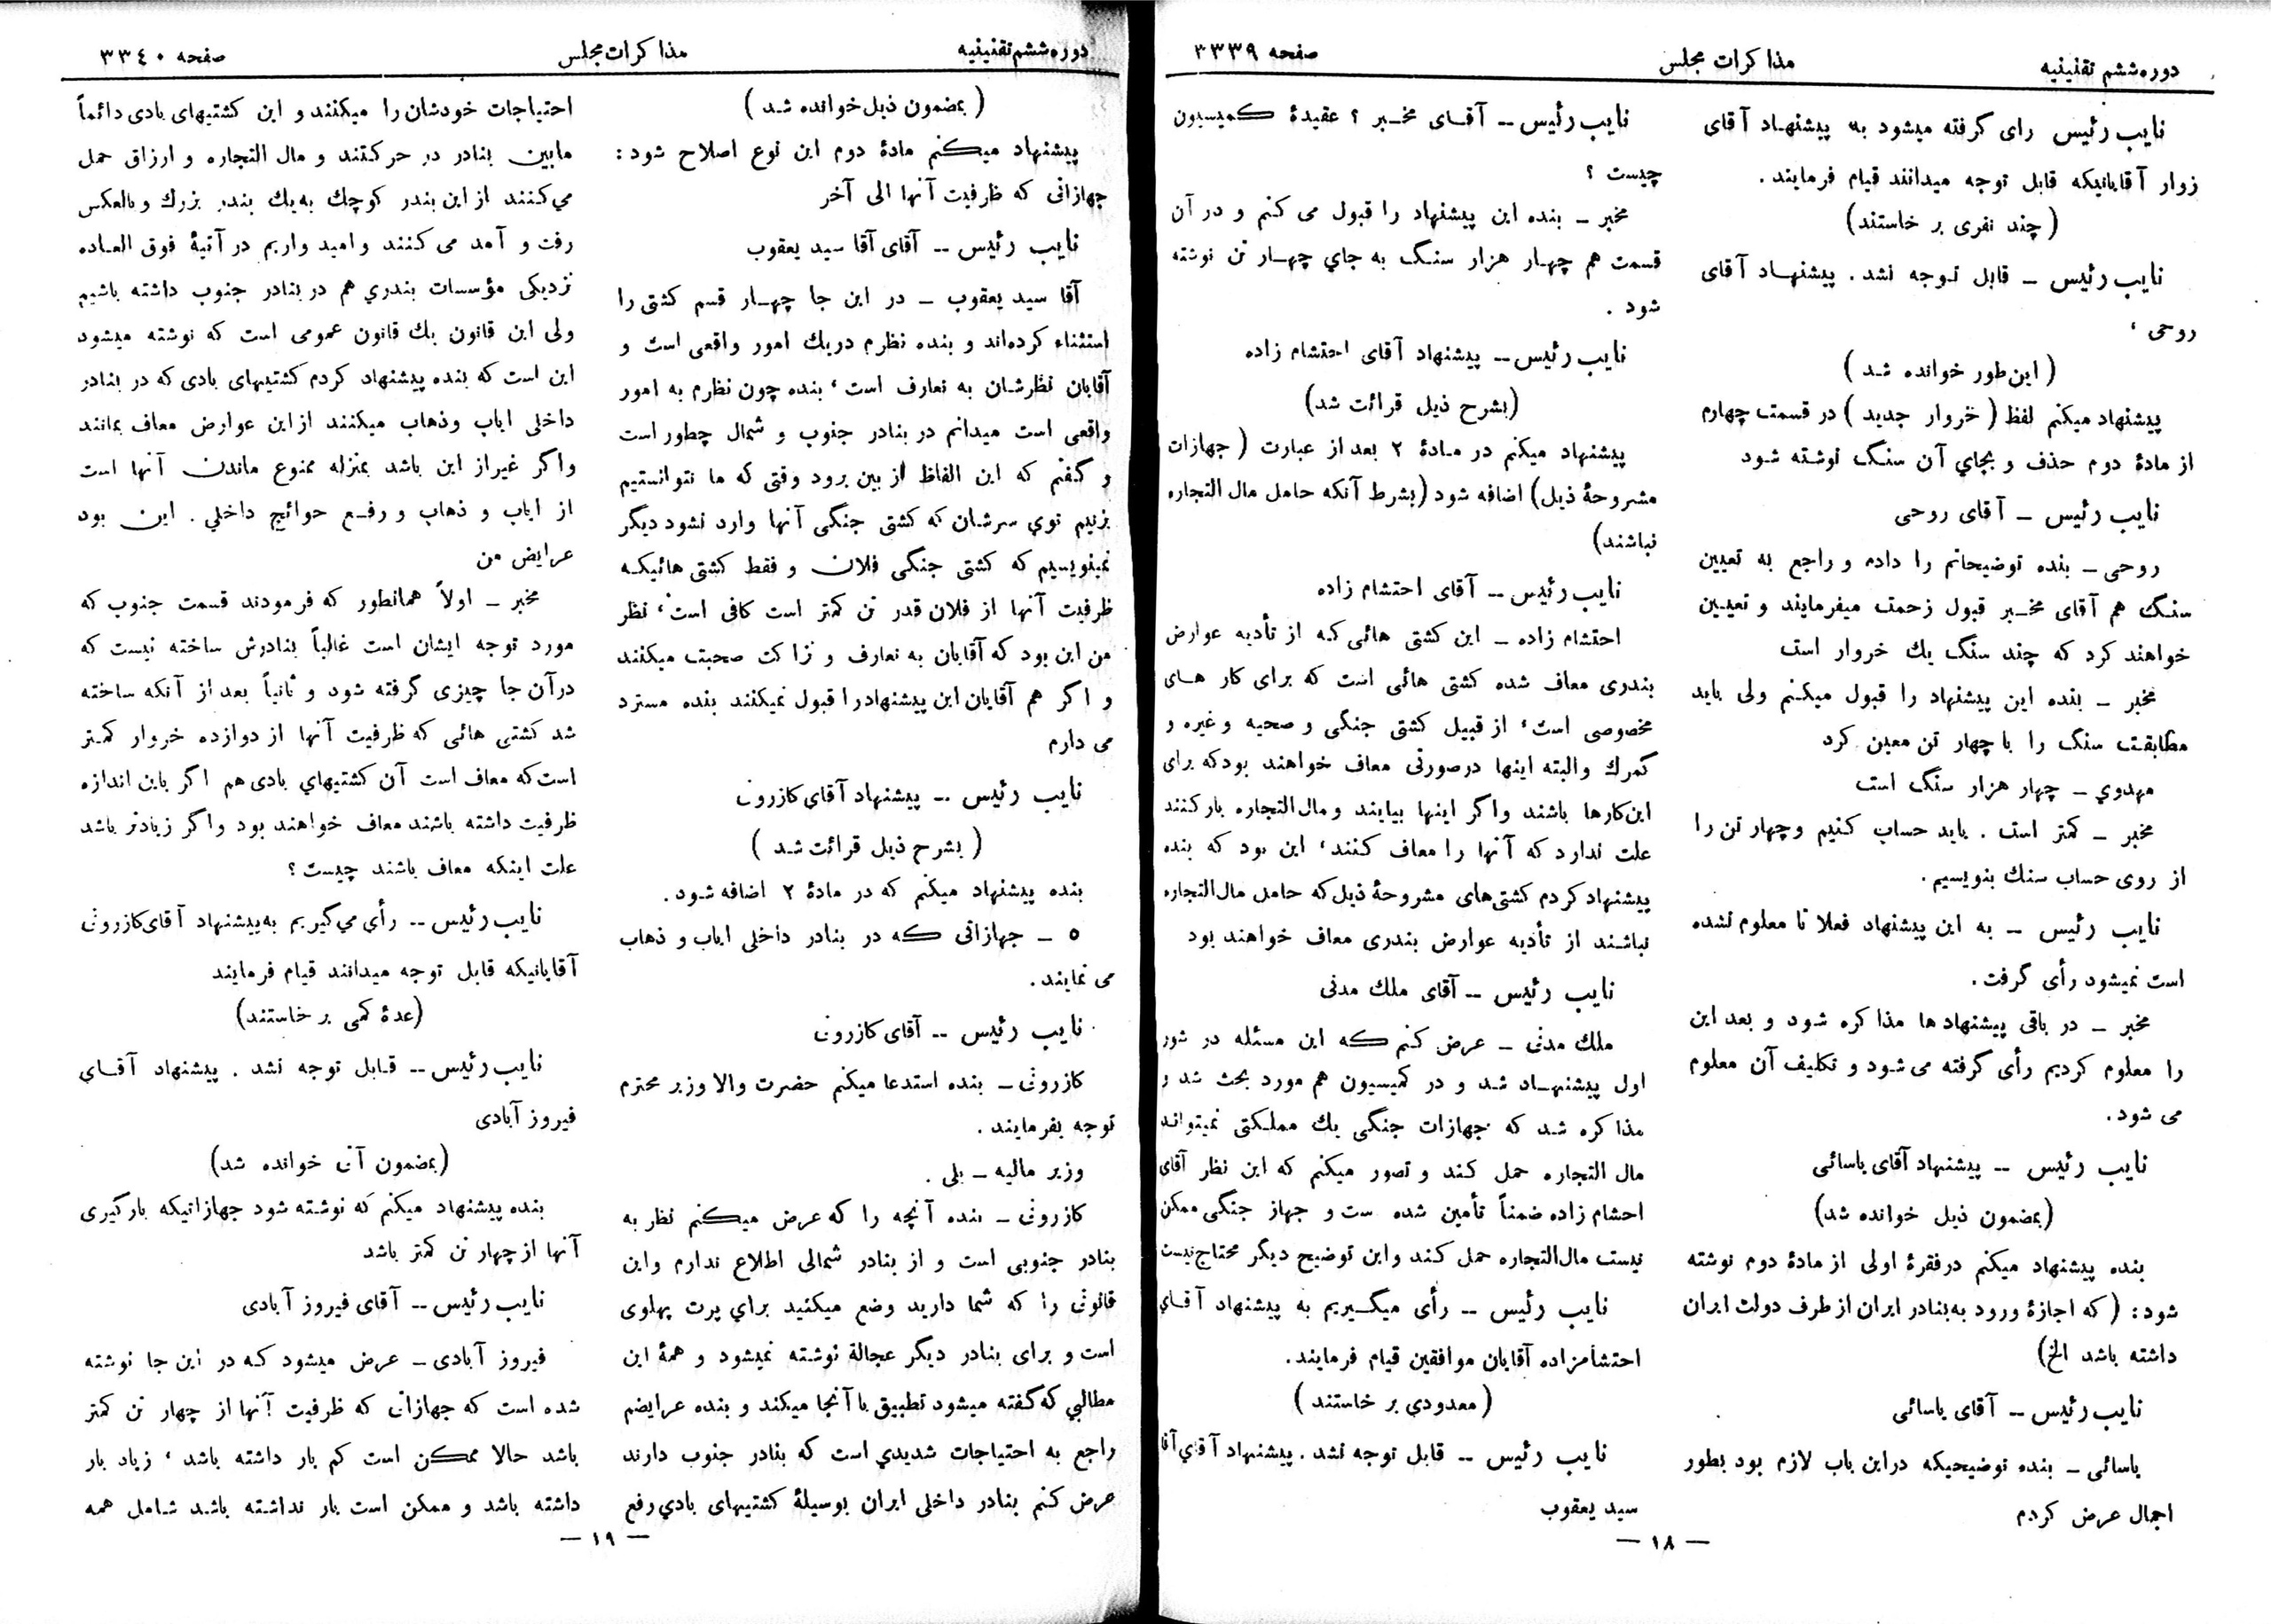 دوره ششم تقنینیه
مذاکرات مجلس
صفحه ۳۳۳۹
نایب رئیس رای گرفته میشود به پیشنهاد آقای
زوار آقایانیکه قابل توجه میدانند قیام فرمایند .
(چند نفری بر خاستند)
نایب رئیس – قابل توجه نشد . پیشنهاد آقای
روحی ،
(این طور خوانده شد )
پیشنهاد میکنم لفظ (خروار جدید ) در قسمت چهارم
از مادۀ دوم حذف و بجاي آن سنگ نوشته شود
نایب رئیس – آقای روحی
روحی – بنده توضیحاتم را دادم و راجع به تعیین
سنگ هم آقای مخبر قبول زحمت میفرمایند و تعیین
خواهند کرد که چند سنگ یك خروار است
مخبر – بنده این پیشنهاد را قبول میکنم ولی باید
مطابقت سنگ را با چهار تن معین کرد
مهدوي – چهار هزار سنگ است
مخبر – کمتر است . باید حساب کنیم وچهار تن را
از روی حساب سنك بنویسیم .
نایب رئیس – به این پیشنهاد فعلا تا معلوم نشده
است نمیشود رأی گرفت .
مخبر – در باقی پیشنهادها مذاکره شود و بعد این
را معلوم کردیم رأی گرفته می شود و تکلیف آن معلوم
می شود .
نایب رئیس -- پیشنهاد آقای یاسائی
(بمضمون ذیل خوانده شد)
بنده پیشنهاد میکنم درفقرۀ اولی از مادۀ دوم نوشته
شود : ( که اجازۀ ورود به بنادر ایران از طرف دولت ایران
داشته باشد الخ)
نایب رئیس -- آقای یاسائی
یاسائی – بنده توضیحیکه دراین باب لازم بود بطور
اجمال عرض کردم
نایب رئیس -- آقای مخبر ؟ عقیدۀ کمیسیون
چیست ؟
مخبر – بنده این پیشنهاد را قبول می کنم و در آن
قسمت هم چهار هزار سنگ به جاي چهار تن نوشته
شود .
نایب رئیس -- پیشنهاد آقای احتشام زاده
(بشرح ذیل قرائت شد)
پیشنهاد میکنم در مادۀ ۲ بعد از عبارت ( جهازات
مشروحۀ ذیل) اضافه شود (بشرط آنکه حامل مال التجاره
نباشند)
نایب رئیس -- آقای احتشام زاده
احتشام زاده – این کشتی هائی که از تأدیه عوارض
بندری معاف شده کشتی هائی است که برای کار های
مخصوصی است ، از قبیل کشتی جنگی و صحیه و غیره و
گمرك والبته اینها درصورتی معاف خواهند بود که برای
این کارها باشند واگر اینها بیایند ومال التجاره بار کنند
علت ندارد که آنها را معاف کنند ، این بود که بنده
پیشنهاد کردم کشتی های مشروحۀ ذیل که حامل مال التجاره
نباشند از تأدیه عوارض بندری معاف خواهند بود
نایب رئیس -- آقای ملك مدنی
ملك مدنی – عرض کنم که این مسئله در شور
اول پیشنهاد شد و در کمیسیون هم مورد بحث شد و
مذاکره شد که جهازات جنگی یك مملکتی نمیتواند
مال التجاره حمل کند و تصور میکنم که این نظر آقای
احشام زاده ضمناً تأمین شده ست و جهاز جنگی ممکن
نیست مال التجاره حمل کند واین توضیح دیگر محتاج نیست
نایب رئیس -- رأی میگیریم به پیشنهاد آقاي
احتشامزاده آقایان موافقین قیام فرمایند .
(معدودي بر خاستند )
نایب رئیس -- قابل توجه نشد . پیشنهاد آقاي آقا
سید یعقوب
– ۱۸ –
دوره ششم تقنینیه
مذاکرات مجلس
صفحه ۳۳٤۰
( بمضمون ذیل خوانده شد )
پیشنهاد میکنم مادۀ دوم این نوع اصلاح شود :
جهازاتی که ظرفیت آنها الی آخر
نایب رئیس -- آقای آقا سید یعقوب
آقا سید یعقوب – در این جا چهار قسم کشتی را
استثناء کرده اند و بنده نظرم دریك امور واقعی است و
آقایان نظرشان به تعارف است ، بنده چون نظرم به امور
واقعی است میدانم در بنادر جنوب و شمال چطور است
و گفتم که این الفاظ از بین برود وقتی که ما نتوانستیم
بزنیم توي سرشان که کشتی جنگی آنها وارد نشود دیگر
نمینویسیم که کشتی جنگی فلان و فقط کشتی هائیکه
ظرفیت آنها از فلان قدر تن کمتر است کافی است ، نظر
من این بود که آقایان به تعارف و نزاکت صحبت میکنند
و اگر هم آقایان این پیشنهاد را قبول نمیکنند بنده مسترد
می دارم
نایب رئیس -- پیشنهاد آقای کازرونی
( بشرح ذیل قرائت شد )
بنده پیشنهاد میکنم که در مادۀ ۲ اضافه شود .
٥ – جهازاتی که در بنادر داخلی ایاب و ذهاب
می نمایند .
نایب رئیس -- آقای کازرونی
کازرونی – بنده استدعا میکنم حضرت والا وزیر محترم
توجه بفرمایند .
وزیر مالیه – بلی .
کازرونی – بنده آنچه را که عرض میکنم نظر به
بنادر جنوبی است و از بنادر شمالی اطلاع ندارم واین
قانونی را که شما دارید وضع میکنید براي پرت پهلوی
است و برای بنادر دیگر عجالة نوشته نمیشود و همۀ این
مطالبی که گفته میشود تطبیق با آنجا میکند و بنده عرایضم
راجع به احتیاجات شدیدي است که بنادر جنوب دارند
عرض کنم بنادر داخلی ایران بوسیلۀ کشتیهای بادي رفع
احتیاجات خودشان را میکنند و این کشتیهای بادی دائماً
مابین بنادر در حرکتند و مال التجاره و ارزاق حمل
مي کنند از این بندر کوچك به یك بندر بزرك و بالعکس
رفت و آمد می کنند و امید واریم در آتیۀ فوق العاده
نزدیکی مؤسسات بندري هم در بنادر جنوب داشته باشیم
ولی این قانون یك قانون عمومی است که نوشته میشود
این است که بنده پیشنهاد کردم کشتیهای بادی که در بنادر
داخلی ایاب وذهاب میکنند از این عوارض معاف بمانند
واگر غیر از این باشد بمنزله ممنوع ماندن آنها است
از ایاب و ذهاب و رفع حوائج داخلي . این بود
عرایض من
مخبر – اولاً همانطور که فرمودند قسمت جنوب که
مورد توجه ایشان است غالباً بنادرش ساخته نیست که
درآن جا چیزی گرفته شود و ثانیاً بعد از آنکه ساخته
شد کشتی هائی که ظرفیت آنها از دوازده خروار کمتر
است که معاف است آن کشتیهاي بادی هم اگر باین اندازه
ظرفیت داشته باشند معاف خواهند بود واگر زیادتر باشد
علت اینکه معاف باشند چیست ؟
نایب رئیس -- رأی مي گیریم به پیشنهاد آقای کازرونی
آقایانیکه قابل توجه میدانند قیام فرمایند
(عدۀ کمی بر خاستند)
نایب رئیس -- قابل توجه نشد . پیشنهاد آقای
فیروز آبادی
(بمضمون آتی خوانده شد)
بنده پیشنهاد میکنم که نوشته شود جهازاتیکه بارگیری
آنها از چهار تن کمتر باشد
نایب رئیس -- آقای فیروز آبادی
فیروز آبادی – عرض میشود که در این جا نوشته
شده است که جهازاتی که ظرفیت آنها از چهار تن کمتر
باشد حالا ممکن است کم بار داشته باشد ، زیاد بار
داشته باشد و ممکن است بار نداشته باشد شامل همه
– ۱۹ –